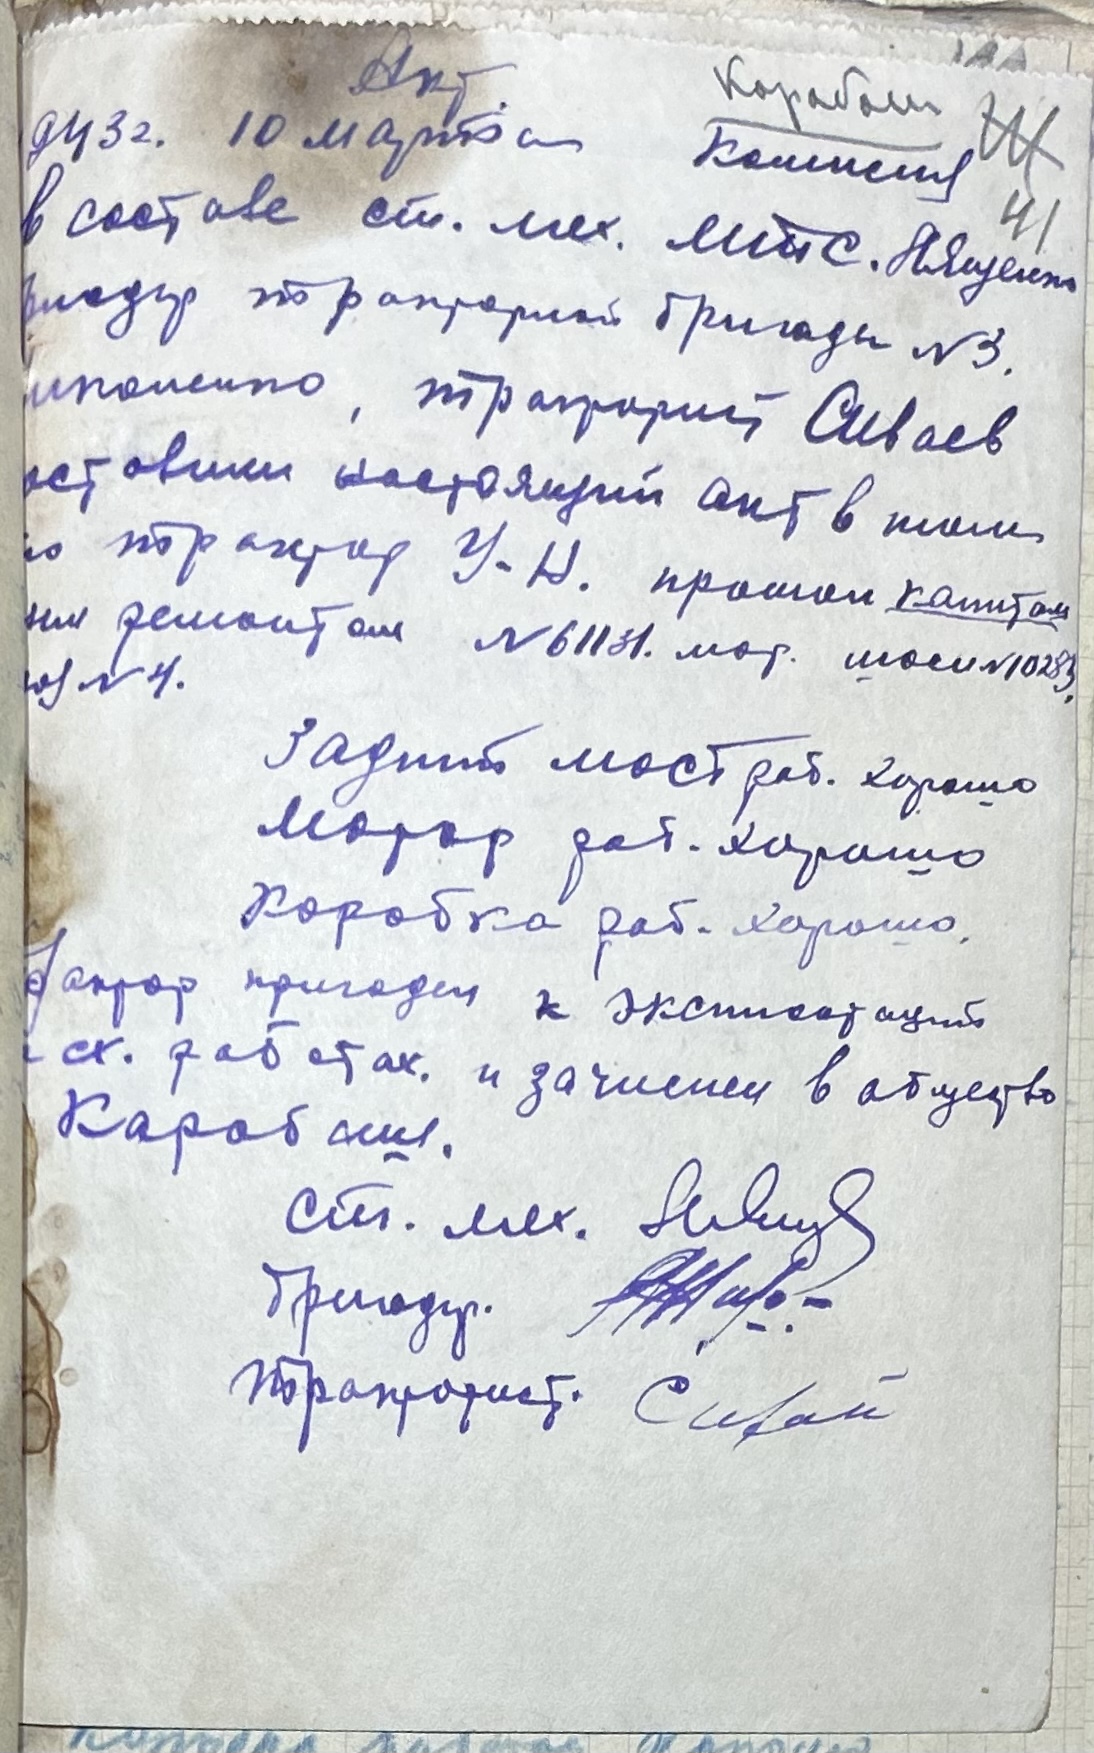 Акт
Коробом
943 г. 10 марта м Комиссия
41
в составе ст. мех. МТС. Яценко
ригадир тракторной бригады №3.
тракторист Сиваев
оставили настоящий акт в том
то трактор У-Н. прошол капитал
ним ремонтом №61131. мот. шоси №10283
№4.
Задний мост раб. хорошо
Мотор раб. хорошо
Коробка раб. хорошо.
рактор пригоден к эксплоатаций
сх. работах. и зачислен в общество
Каробкин.
Ст. мех.
Бригадир.
Тракторист. Сивай